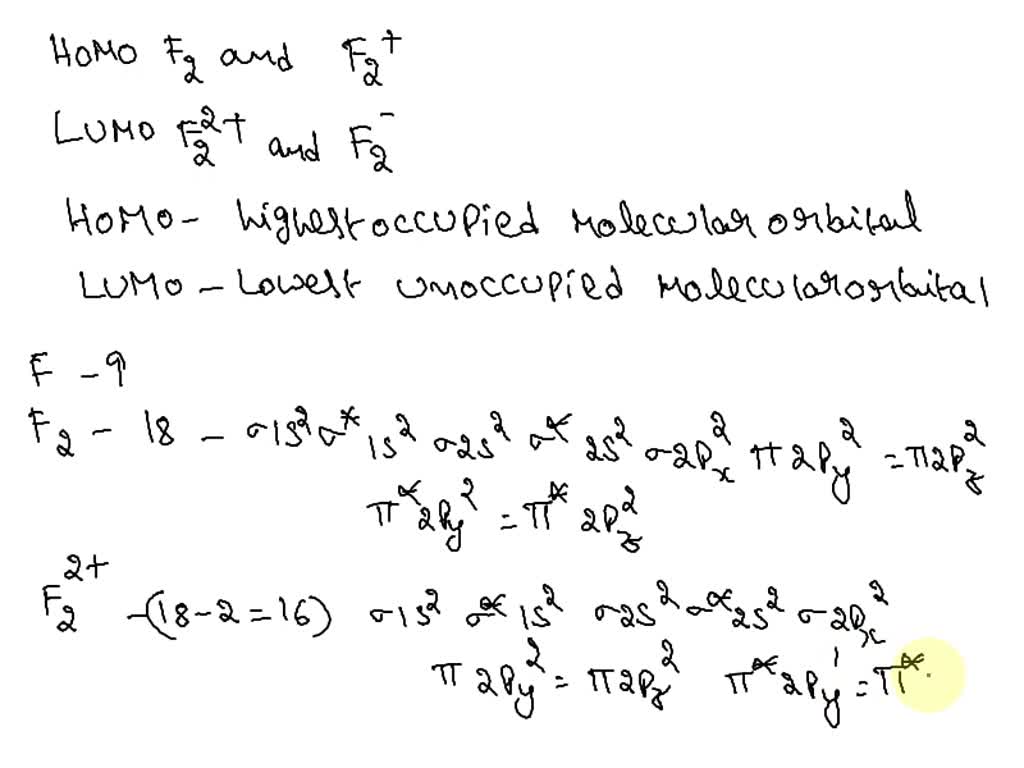 HOMO F₂ and F₂⁺
LUMO F₂²⁺ and F₂⁻
HOMO - highest occupied molecular orbital
LUMO - Lowest unoccupied molecular orbital
F - 9
F₂ - 18 - σ1s² σ* 1s² σ2s² σ* 2s² σ2Pₓ² π 2Py² = π2Pz²
π* 2Py² = π* 2Pz²
F₂²⁺ - (18-2=16) σ1s² σ* 1s² σ2s² σ* 2s² σ2Pₓ²
π 2Py² = π2Pz² π* 2Py¹ = π*